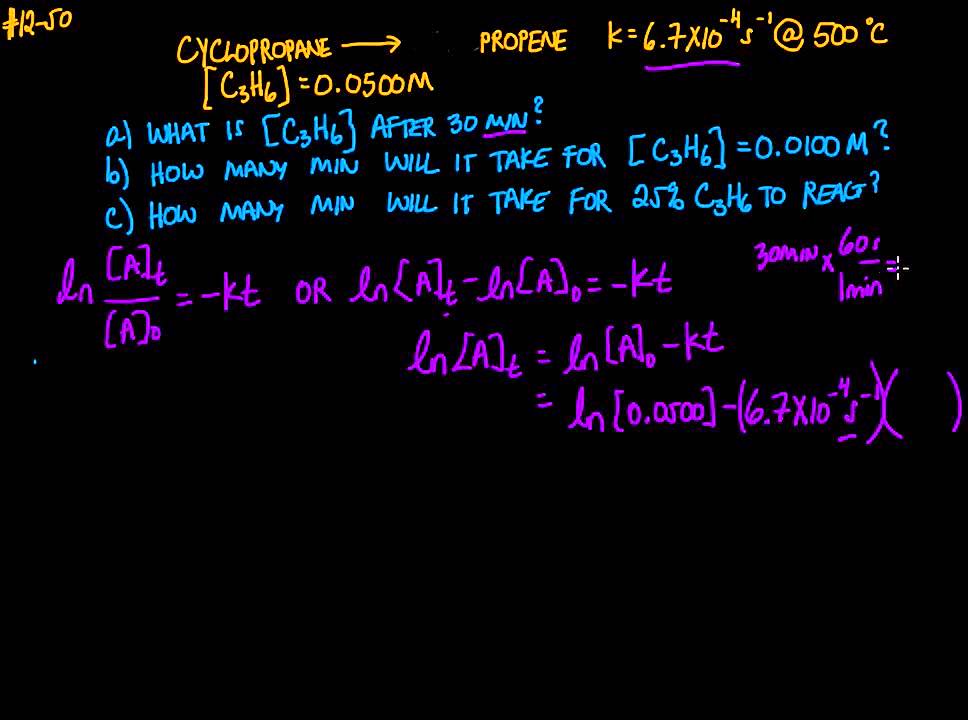 #12-50
CYCLOPROPANE ⟶ PROPENE k = 6.7×10⁻⁴ s⁻¹ @ 500°C
[C₃H₆] = 0.0500 M
a) WHAT IS [C₃H₆] AFTER 30 MIN?
b) HOW MANY MIN WILL IT TAKE FOR [C₃H₆] = 0.0100 M?
c) HOW MANY MIN WILL IT TAKE FOR 25% C₃H₆ TO REACT?
30MIN × 60s/1min =
ln [A]t/[A]₀ = -kt OR ln[A]t - ln[A]₀ = -kt
ln[A]t = ln[A]₀ - kt
= ln[0.0500] - (6.7×10⁻⁴ s⁻¹)( )